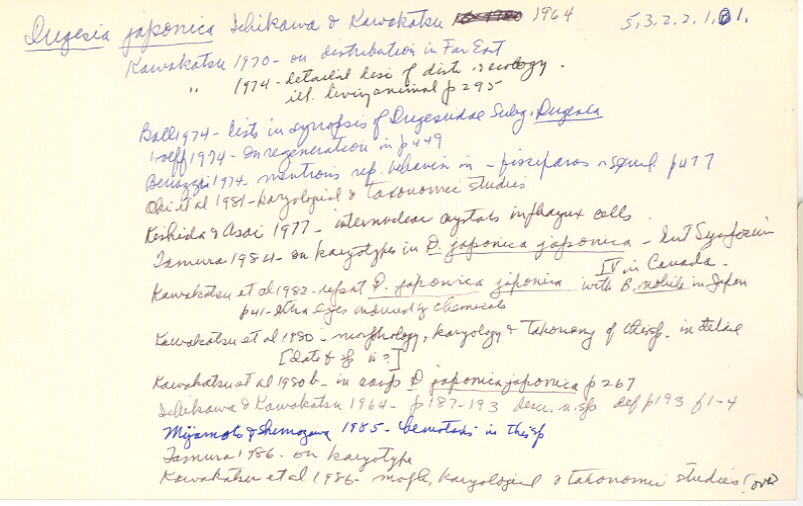 Dugesia japonica Ichikawa & Kawakatsu 1964 5.3.2.2.1.01.
Kawakatsu 1970 - on distribution in Far East
" 1974 - detailed desc of distr. & ecology.
ill. living animal p 295
Ball 1974 - lists in synopsis of Dugesiidae Subg. Dugesia
Wolff 1974 - on regeneration in p 449
Benazzi 1974 - mentions rep. behavior in - fissiparous & sexual p 477
Oki et al 1981 - karyological & taxonomic studies
Kishida & Asai 1977 - internuclear crystals in pharynx cells.
Tamura 1984 - on karyotypes in D. japonica japonica - Int Symposium
IV in Canada -
Kawakatsu et al 1982 - rep at D. japonica japonica with B. nobile in Japan
p 41 - extra eyes induced by chemicals
Kawakatsu et al 1980 - morphology, karyology & taxonomy of this sp. in detail
[date of sp is ?]
Kawakatsu et al 1980b - in D japonica japonica p 267
Ichikawa & Kawakatsu 1964 - p 187-193 descr. n. sp def p 193 f 1-4
Miyamoto & Shimozawa 1985 - chemotaxis in this sp
Tamura 1986 - on karyotype
Kawakatsu et al 1986 - morph, karyological & taxonomic studies (over